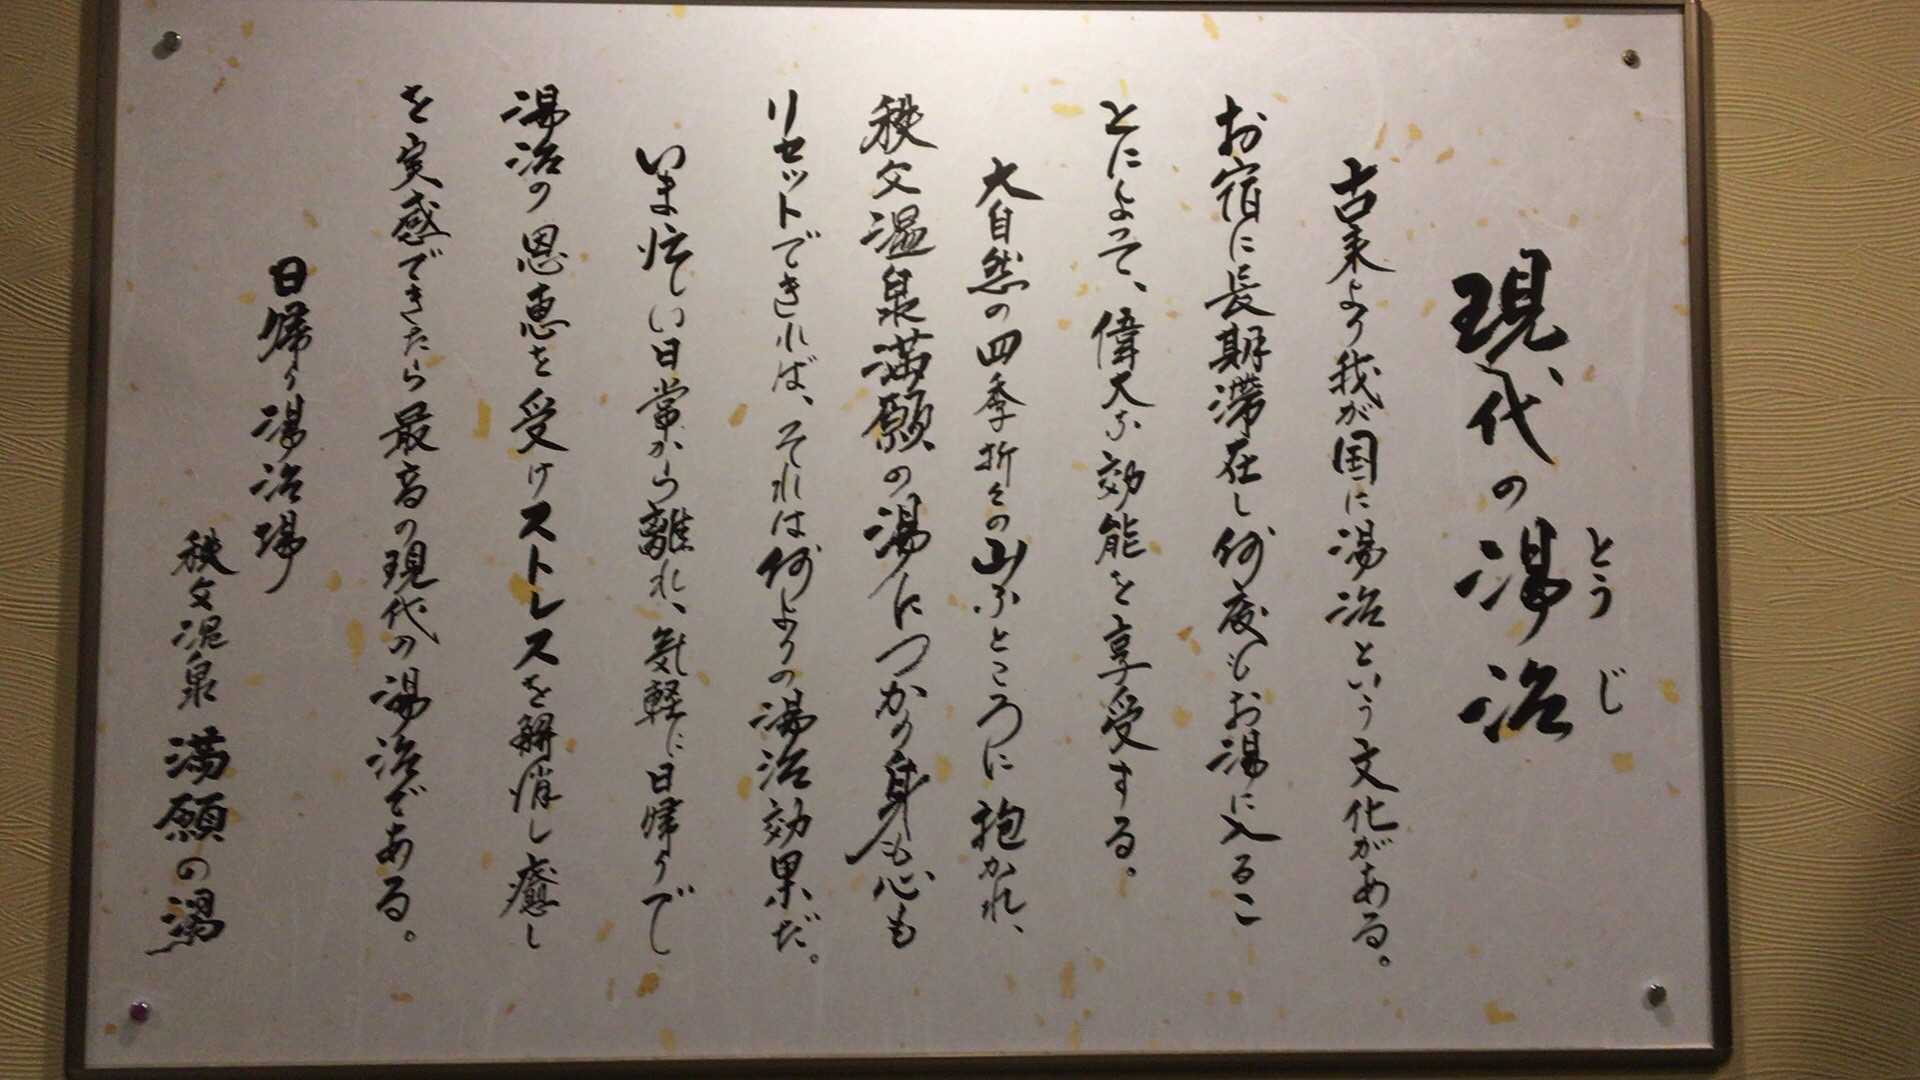 現代の湯治
とうじ
古来より我が国に湯治という文化がある。
お宿に長期滞在し何度もお湯に入るこ
とによって、偉大な効能を享受する。
大自然の四季折々の山ふところに抱かれ、
秩父温泉満願の湯につかり身も心も
リセットできれば、それは何よりの湯治効果だ。
いま忙しい日常から離れ、気軽に日帰りで
湯治の恩恵を受けストレスを解消し癒し
を実感できたら最高の現代の湯治である。
日帰り湯治場
秩父温泉 満願の湯